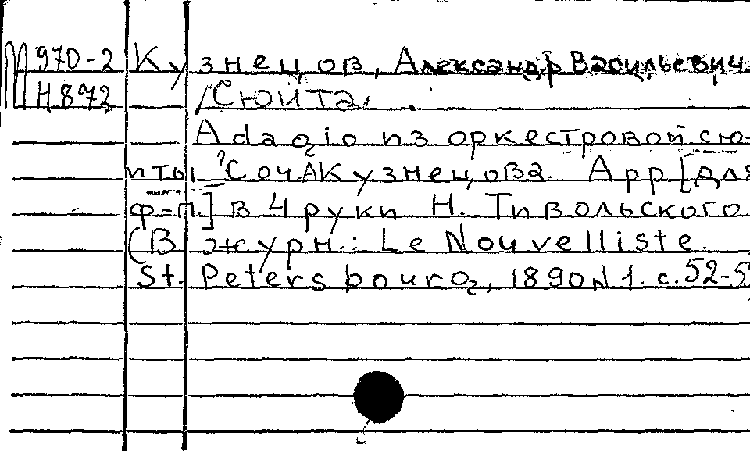 М 970-2 Кузнецов, Александр Васильевич.
Н 872 /Сюита.
Adagio из оркестровой сю-
иты Соч. А Кузнецова. Арр [для
ф-п.] в 4 руки Н. Тивольского
(В журн.: Le Nouvelliste.
St. Petersbourg, 1890 N 1. с. 52-5